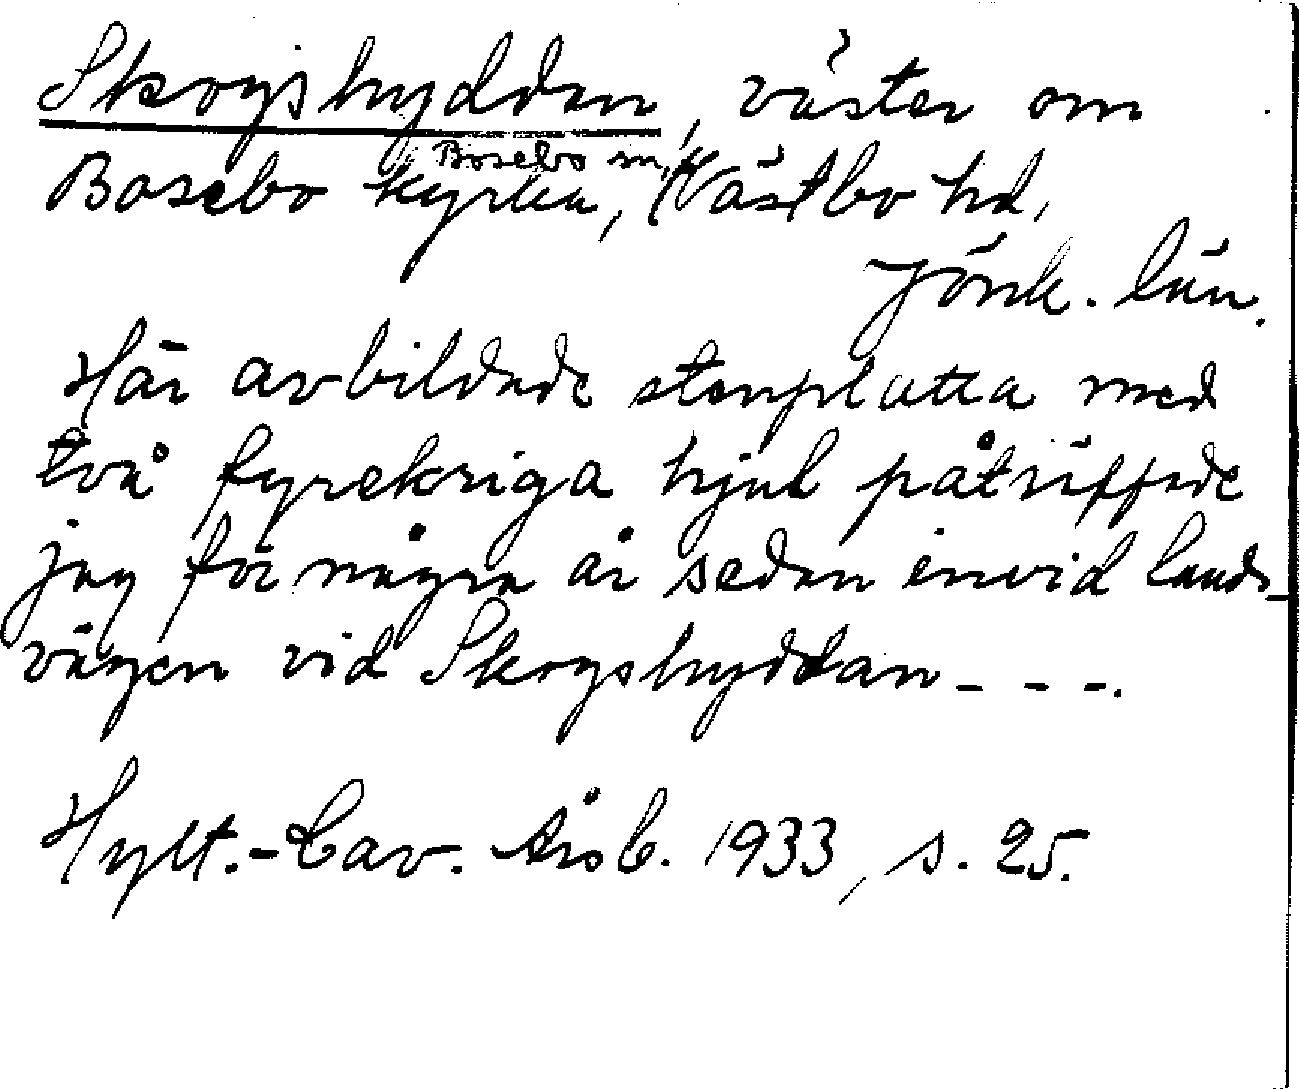 Skogshyddan, väster om
Bosebo sn,
Bosebo kyrka, (Västbo hd,
Jönk. län.
Här avbildade stenplatta med
två fyrekriga hjul påträffade
jag för några år sedan invid lands-
vägen vid Skogshyddan - - -.
Hylt.-Cav. Årsb. 1933, s. 25.